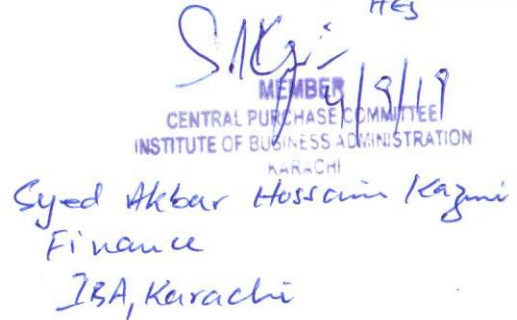 HEJ
MEMBER
4/9/19
CENTRAL PURCHASE COMMITTEE
INSTITUTE OF BUSINESS ADMINISTRATION
KARACHI
Syed Akbar Hossain Kazmi
Finance
IBA, Karachi